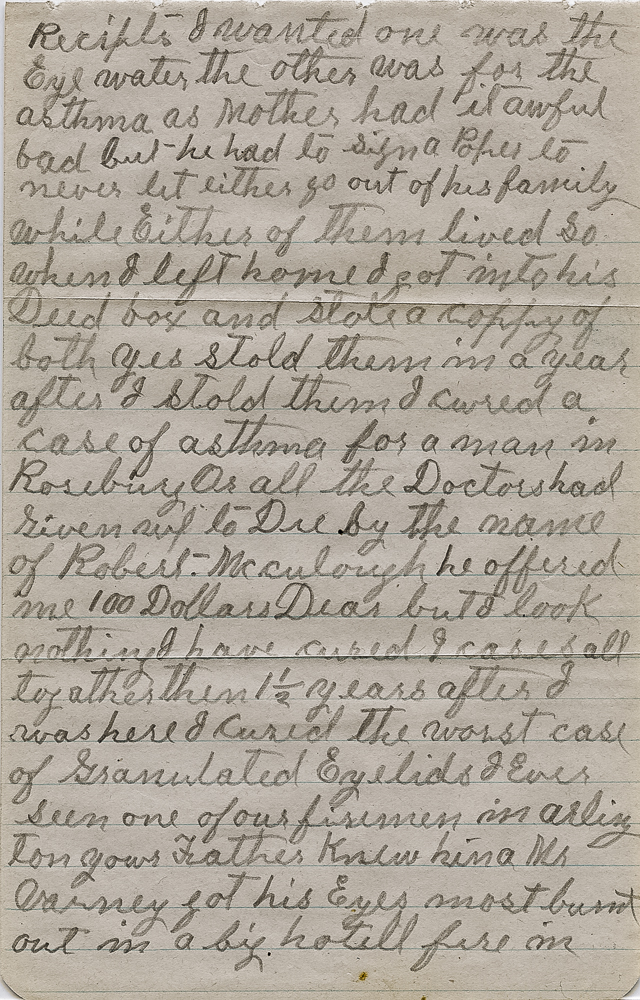 Recipts I wanted one was the
Eye water the other was for the
asthma as Mother had it awful
bad but he had to sign a Poper to
never let either go out of his family
while Either of them lived so
when I left home I got into his
Deed box and stole a coppy of
both yes stold them in a year
after I stold them I cured a
case of asthma for a man in
Roseburg Or all the Doctors had
given up to Die by the name
of Robert Mcculough he offered
me 100 Dollars Dear but I took
nothing I have cured 7 cases all
togather then 1½ years after I
was here I cured the worst case
of Granulated Eyelids I Ever
seen one of our firemen in arling
ton yowr Father Knew hina Mr
Varney got his Eyes most burnt
out in a big hotell fire in